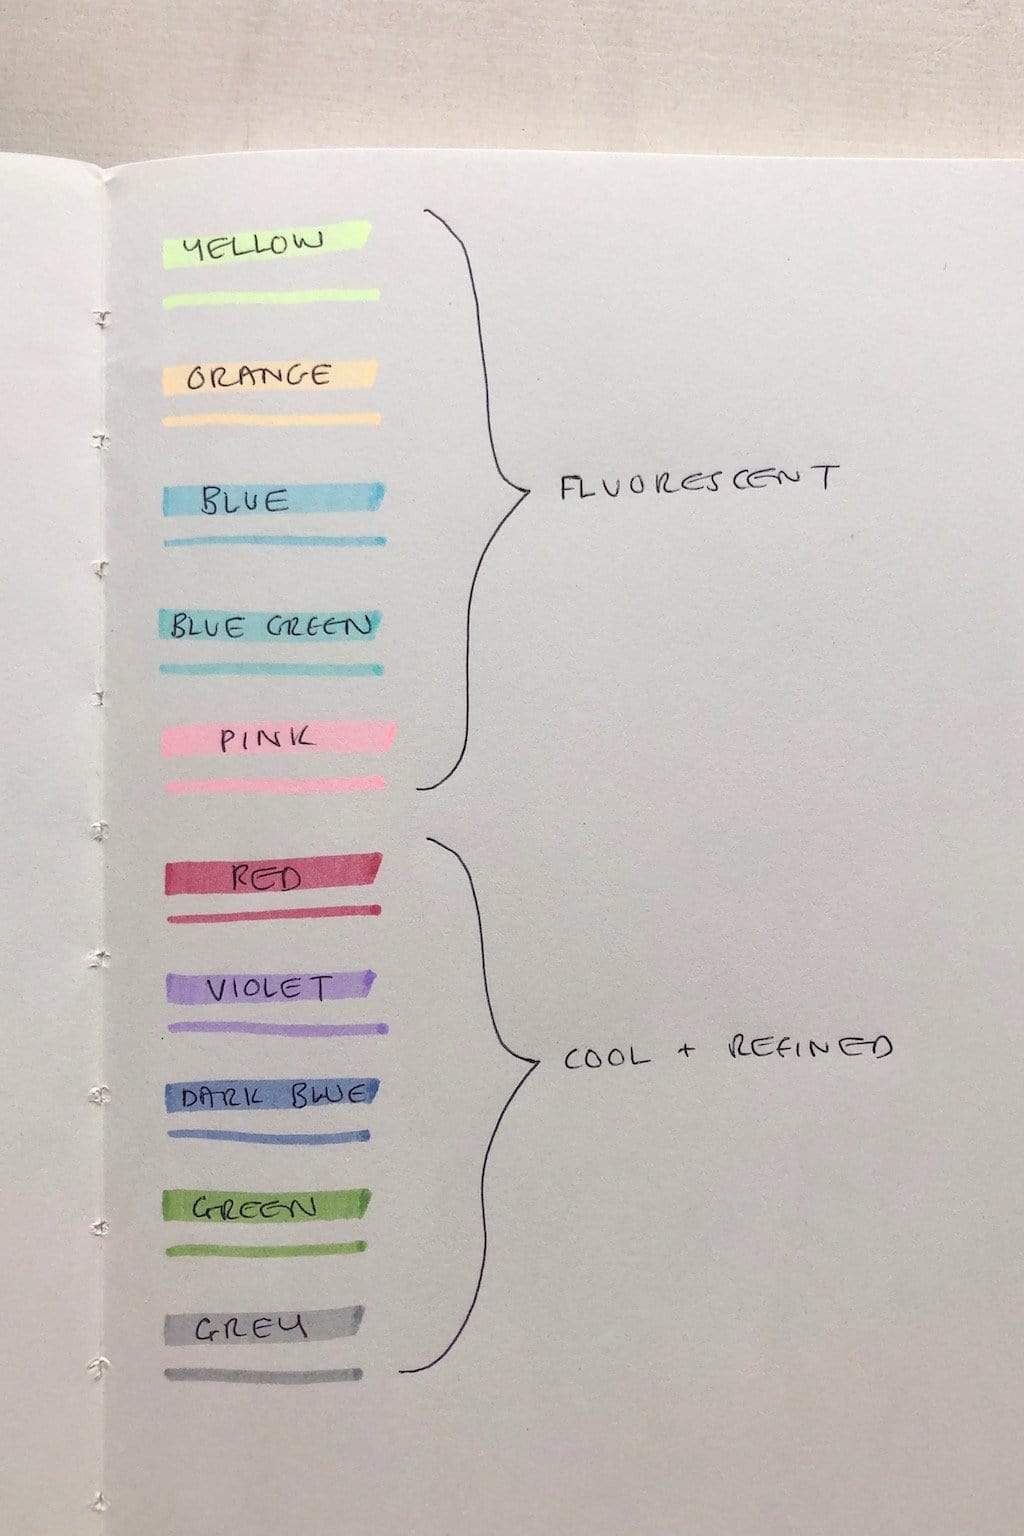 YELLOW
ORANGE
BLUE
FLUORESCENT
BLUE GREEN
PINK
RED
VIOLET
COOL + REFINED
DARK BLUE
GREEN
GREY